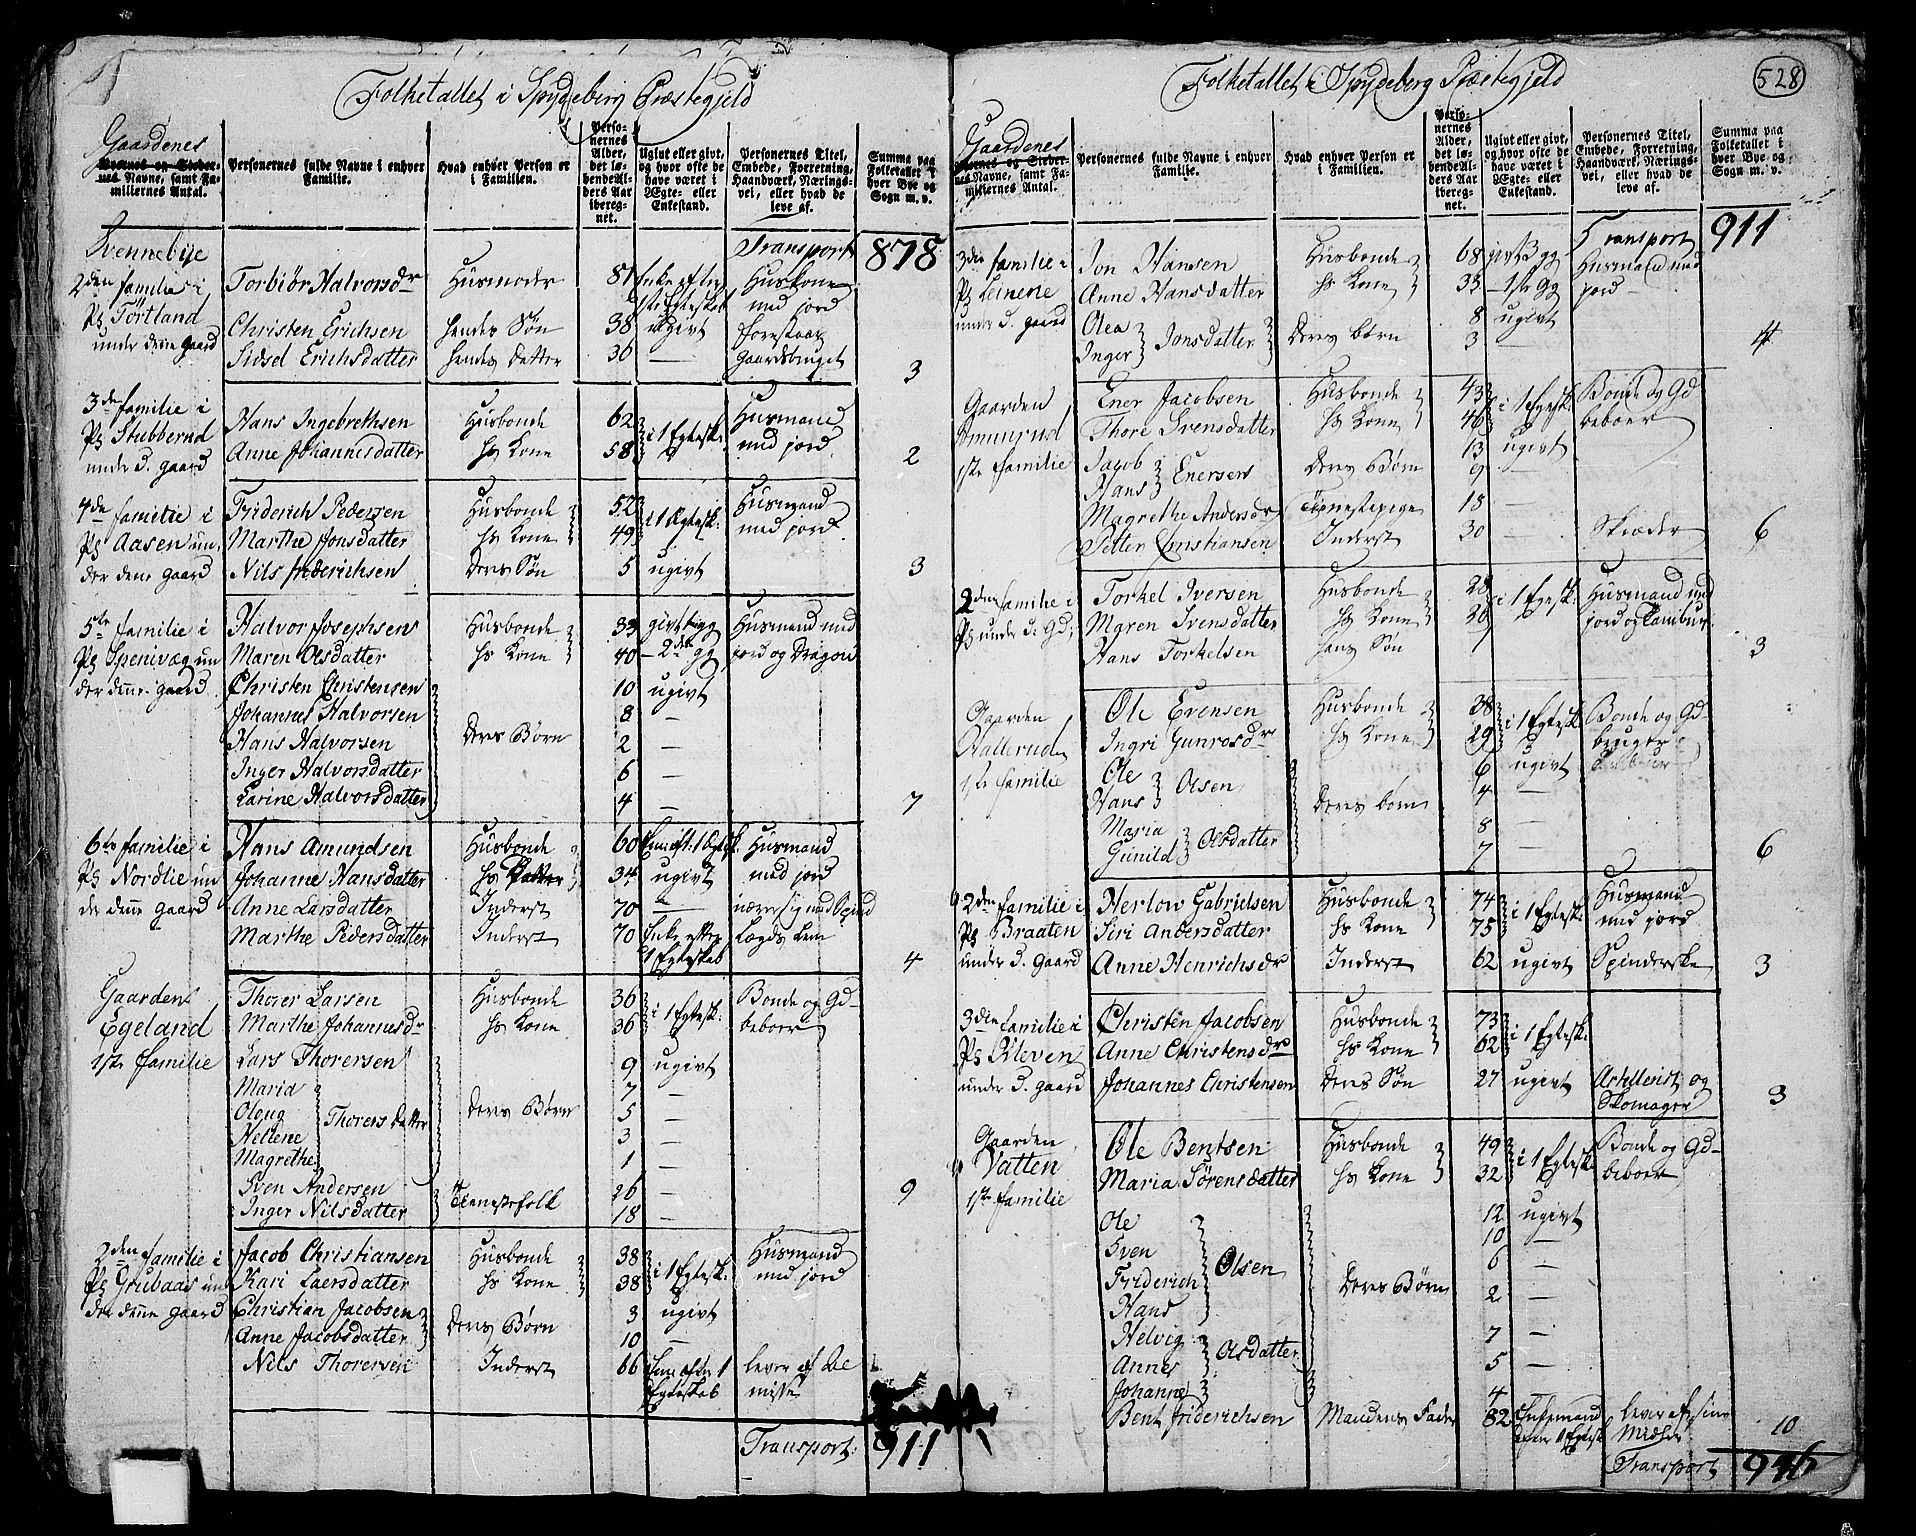 Folketallet i Spydeberg Præstegjeld
Gaardenes
Byernes og Steder-
nes Navne, samt Fa-
miliernes Antal.
Personernes fulde Navne i enhver
Familie.
Hvad enhver Person er
i Familien.
Perso-
nernes
Alder,
det lø-
bende Al-
ders Aar
iberegnet.
Ugivt eller givt,
og hvor ofte de
have været i
Egte- eller
Enkestand.
Personernes Titel,
Embede, Forretning,
Haandværk, Nærings-
vei, eller hvad de
leve af.
Summa paa
Folketallet i
hver Bye og
Sogn m. v.
Transport 878
Svennebye
2den familie i Ps Törtland under denne gaard
Torbiör Halvorsdr Husmoder 81 Enke efter 1ste Egteskab Huskone med jord
Christen Erichsen hendes Søn 38 ugivt forestaar
Sidsel Erichsdatter hendes datter 36 — Gaardsbruget
3
3de familie i Ps Stubberud under d. gaard
Hans Ingebrethsen Husbonde 62 i 1 Egtesk: Husmand
Anne Johannesdatter hs Kone 58 med jord
2
4de familie i Ps Aasen under denne gaard
Friderich Pedersen Husbonde 52 i 1 Egtesk: Husmand
Marthe Jonsdatter hs Kone 49 med jord
Nils friderichsen deres Søn 5 ugivt
3
5te familie i Ps Spenivæg under denne gaard
Halvor Josephsen Husbonde 33 givt 1 gg Husmand med
Maren Olsdatter hs Kone 40 — 2den gg jord og Dragon
Christen Christensen 10 ugivt
Johannes Halvorsen 8 —
Hans Halvorsen deres Børn 2 —
Inger Halvorsdatter 6 —
Karine Halvorsdatter 4 —
7
6te familie i Ps Nordlie under denne gaard
Hans Amundsen Husbonde 60 Enkem: eft: 1 Egtesk. Husmand
Johanne Hansdatter hs Datter 34 ugivt med jord
Anne Larsdatter Inderst 70 — nærer sig med Spind
Marthe Pedersdatter Inderst 70 Enke efter 1 Egteskab Lægds lem
4
Gaarden Egeland 1ste familie
Thorer Larsen Husbonde 36 i 1 Egtesk: Bonde og Gd-
Marthe Johannesdr hs Kone 36 beboer
Lars Thorersen 9 ugivt
Maria 7 —
Oloug Thorers datter deres Børn 5 —
Hellene 3 —
Magrethe 1 —
Sven Andersen Tienestefolk 26 —
Inger Nilsdatter 18 —
9
2den familie i Ps Grubaas under denne gaard
Jacob Christiansen Husbonde 38 i 1 Egtesk: Husmand
Kari Laersdatter hs Kone 38 med jord
Christian Jacobsen deres Børn 3 ugivt
Anne Jacobsdatter 10 —
Nils Thorersen Inderst 66 Enkem: efter 1 Egteskab lever af Almisse
Transport: 911
Folketallet i Spydeberg Præstegjeld
528
Gaardenes
Byernes og Steder-
nes Navne, samt Fa-
miliernes Antal.
Personernes fulde Navne i enhver
Familie.
Hvad enhver Person er
i Familien.
Perso-
nernes
Alder,
det lø-
bende Al-
ders Aar
iberegnet.
Ugivt eller givt,
og hvor ofte de
have været i
Egte- eller
Enkestand.
Personernes Titel,
Embede, Forretning,
Haandværk, Nærings-
vei, eller hvad de
leve af.
Summa paa
Folketallet i
hver Bye og
Sogn m. v.
Transport 911
3die familie i Ps Leinene under d. gaard
Jon Hansen Husbonde 68 givt gg Husmand med
Anne Hansdatter hs Kone 33 — 1ste gg jord
Olea Jonsdatter deres børn 8 ugivt
Inger 3
4
Gaarden Amunrud 1ste familie
Ener Jacobsen Husbonde 43 i 1 Egtesk. Bonde og Gd
Thore Svensdatter hs Kone 46 beboer
Jacob Enersers deres Børn 13 ugivt
Hans 9
Magrethe Andersdr Tienestepige 18 —
Petter Christiansen Inderst 30 — Skræder
6
2den familie i Ps under d. Gd:
Torkel Iversen Husbonde 28 i 1 Egtesk. Husmand med
Maren Svensdatter hs Kone 26 jord og Tambur
Hans Torkelsen hans Søn 1
3
Gaarden Hallerud 1ste familie
Ole Evensen Husbonde 38 i 1 Egtesk Bonde og Gd-
Ingri Gunrosdr hs Kone 29 bruger
Ole Olsen 6 ugivt
Hans deres børn 4 —
Maria Olsdatter 8 —
Gunild 7 —
6
2den familie i Ps Braaten under d. gaard
Herlow Gabrielsen Husbonde 74 i 1 Egtesk: Husmand
Siri Andersdatter hs Kone 75 med jord
Anne Henrichsdr Inderst 62 ugivt Spinderske
3
3die familie i Ps Kleven under d. gaard
Christen Jacobsen Husbonde 73 i 1 Egtesk:
Anne Christensdr hs Kone 62
Johannes Christensen deres Søn 27 ugivt Artillerist og
Skomager
3
Gaarden Vatten 1ste familie
Ole Bentsen Husbonde 49 i 1 Egtesk Bonde og Gd-
Maria Sörensdatter hs Kone 32 beboer
Ole 12 ugivt
Sven 10 —
Friderich Olsen deres Børn 6 —
Hans 2 —
Helvig 7 —
Anne Olsdatter 5 —
Johanne 4
Bent friderichsen Mandens Fader 82 Enkemand efter 1 Egtesk lever af sine Midler
10
Transport 946